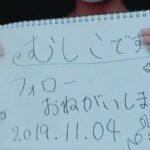 むしこです
フォロー
おねがいしま
2019.11.04